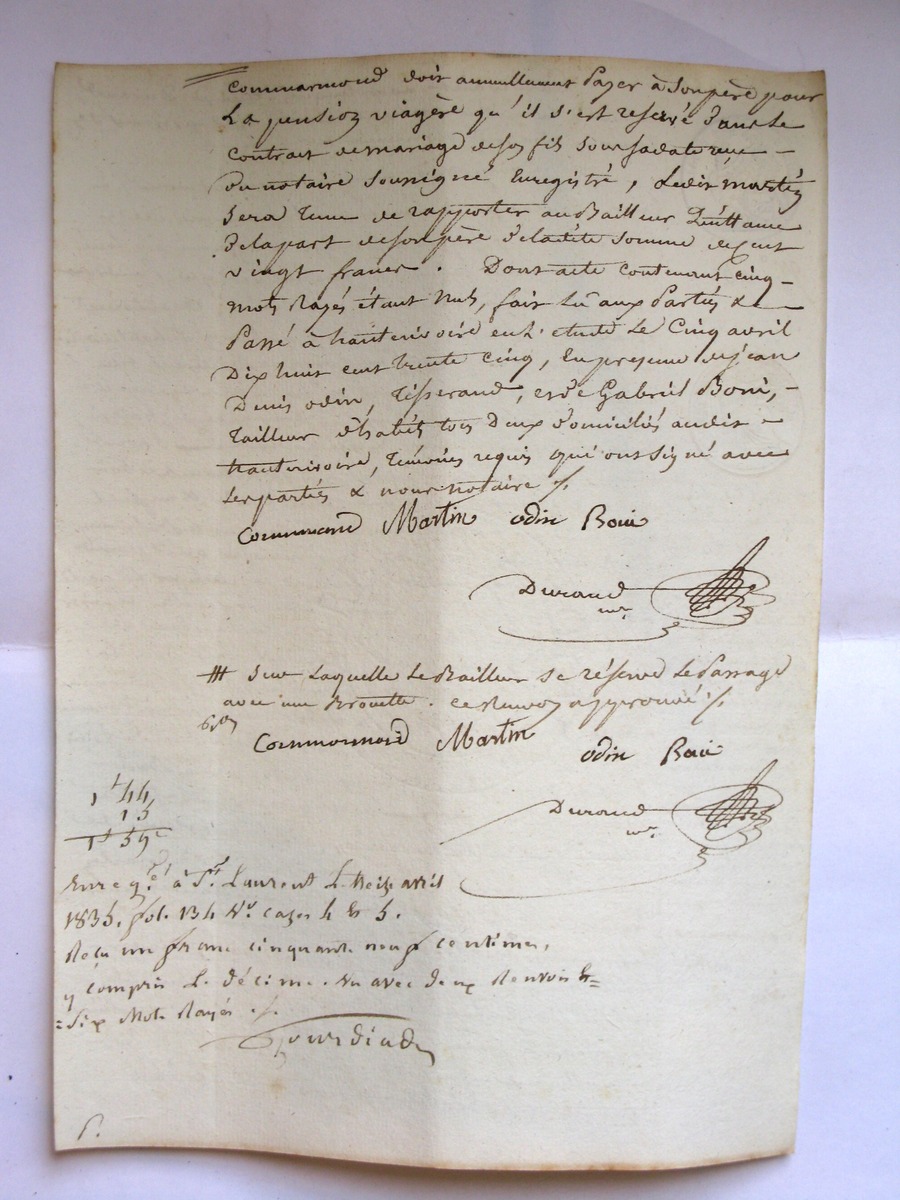 Commarmond doit annuellement Payer à Son père pour
La pension viagère qu'il s'est reservé dans le
Contrat de mariage de son fils Sous sa date reçu –
Du notaire Soussigné Enregistré, Ledit martin
Sera tenu de rapporter au Bailleur Quittance
De la part de son père de ladite Somme de Cent
vingt francs. Dont acte contenant cinq –
mots Rayés étant nuls, fait Lu aux Parties &
Passé à hauterivoire en L'étude Le Cinq avril
Dix huit cent trente cinq, En presence de jean
Denis odin, Tisserand, et de Gabriel Boni, –
Tailleur d'habits tous Deux domiciliés audit –
hauterivoire, témoins requis qui ont Signé avec
Les parties & nous notaire ./.
Commarmond Martin odin Boni
Durand
nre
# Sur Laquelle Le Bailleur se réserve Le Passage
avec une Brouette. ce Renvoy approuvé ./.
Commarmond Martin
odin Boni
1 44
15
1 f 59 c
Durand
nre
Enregtré à St Laurent Le treize avril
1835. fol. 134 Vo cases 4 et 5.
Reçu un franc cinquante neuf centimes,
y compris Le décime. Vu avec deux Renvois et =
= Six Mots Rayés ./.